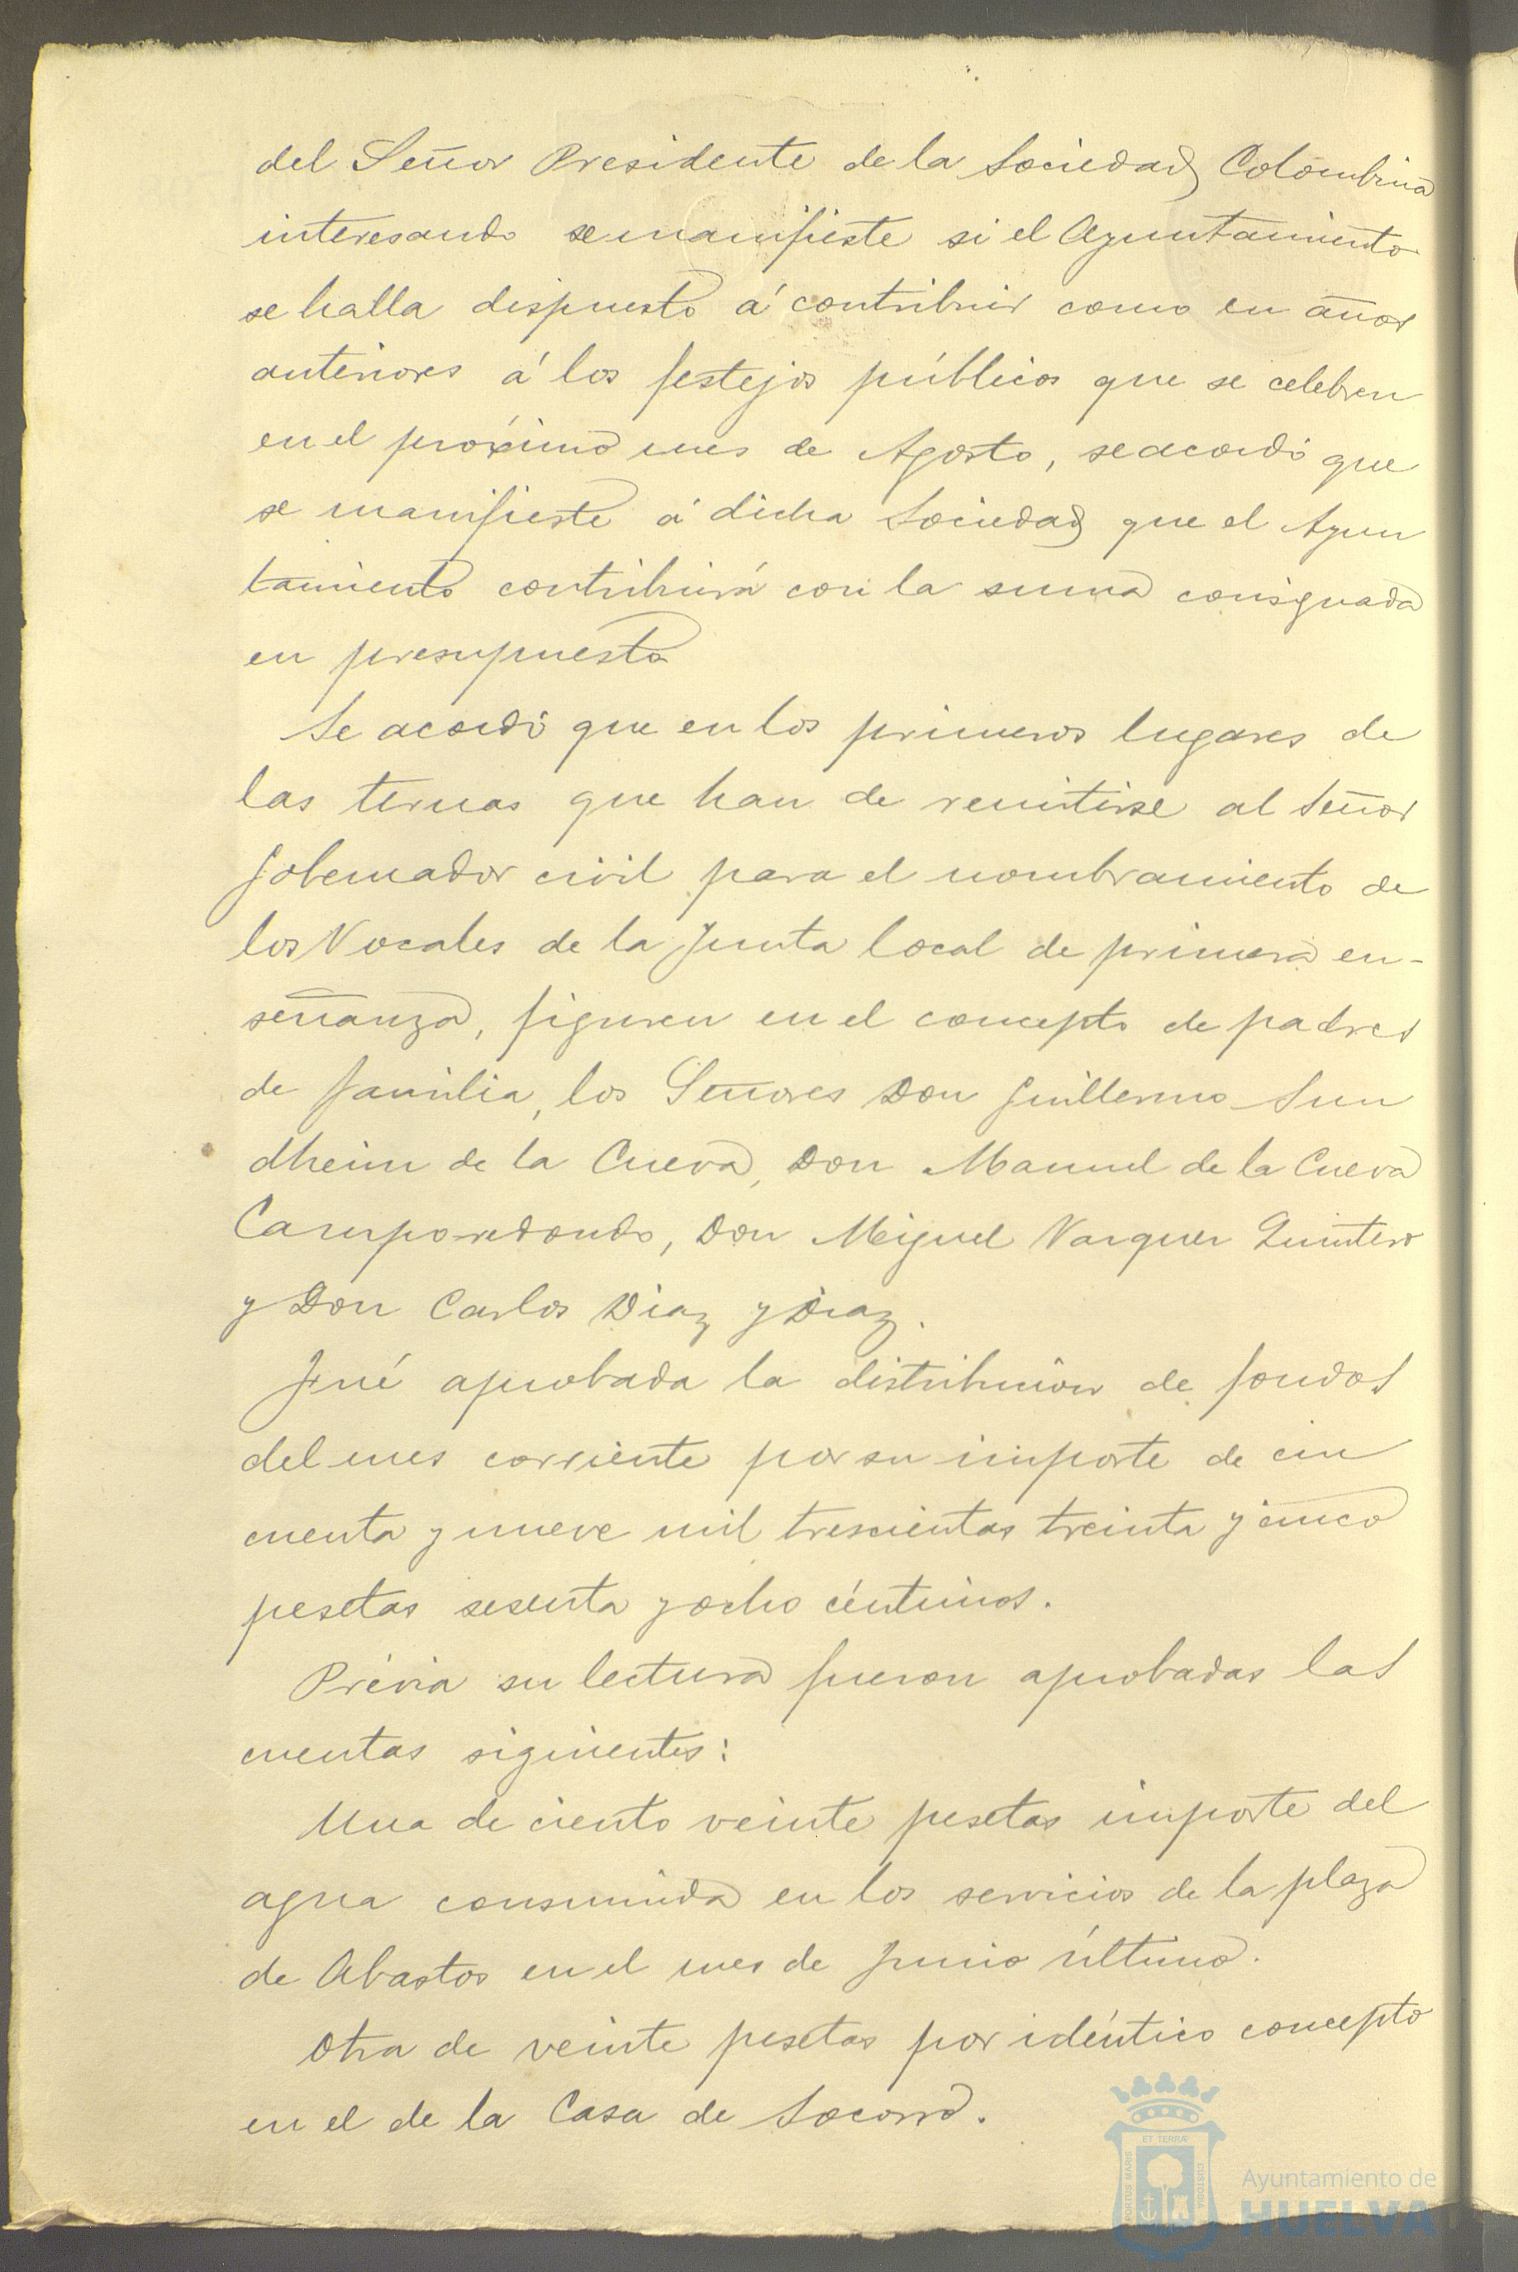 del Señor Presidente de la Sociedad Colombina
interesando se manifieste si el Ayuntamiento
se halla dispuesto á contribuir como en años
anteriores á los festejos públicos que se celebren
en el próximo mes de Agosto, se acordó que
se manifieste á dicha Sociedad que el Ayun
tamiento contribuirá con la suma consignada
en presupuesto
Se acordó que en los primeros lugares de
las ternas que han de remitirse al Señor
Gobernador civil para el nombramiento de
los Vocales de la Junta local de primera en-
señanza, figuren en el concepto de padres
de familia, los Señores Don Guillermo Sun
dheim de la Cueva, Don Manuel de la Cueva
Camporedondo, Don Miguel Vazquez Quintero
y Don Carlos Diaz y Diaz.
Fué aprobada la distribución de fondos
del mes corriente por su importe de cin
cuenta y nueve mil trescientas treinta y cinco
pesetas sesenta y ocho céntimos.
Prévia su lectura fueron aprobadas las
cuentas siguientes:
Una de ciento veinte pesetas importe del
agua consumida en los servicios de la plaza
de Abastos en el mes de Junio último.
Otra de veinte pesetas por idéntico concepto
en el de la Casa de Socorro.
ET TERRÆ
PORTUS MARIS
CUSTODIA
Ayuntamiento de
HUELVA